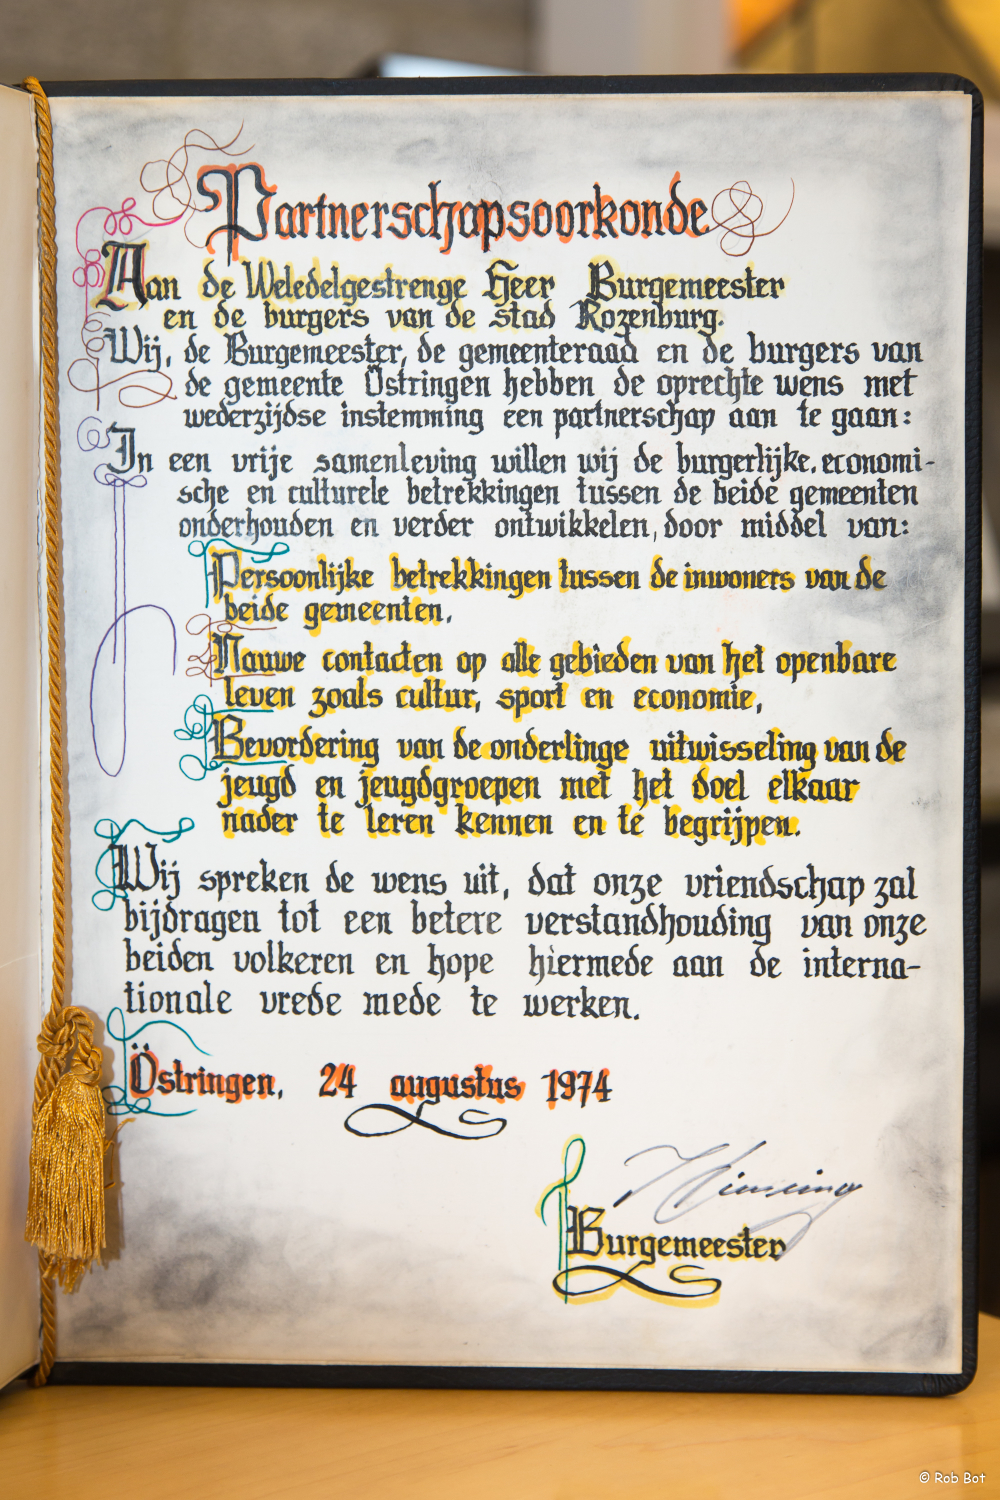 Partnerschapsoorkonde
Aan de Weledelgestrenge Heer Burgemeester
en de burgers van de stad Rozenburg.
Wij, de Burgemeester, de gemeenteraad en de burgers van
de gemeente Östringen hebben de oprechte wens met
wederzijdse instemming een partnerschap aan te gaan:
In een vrije samenleving willen wij de burgerlijke, economi-
sche en culturele betrekkingen tussen de beide gemeenten
onderhouden en verder ontwikkelen, door middel van:
Persoonlijke betrekkingen tussen de inwoners van de
beide gemeenten,
Nauwe contacten op alle gebieden van het openbare
leven zoals cultur, sport en economie,
Bevordering van de onderlinge uitwisseling van de
jeugd en jeugdgroepen met het doel elkaar
nader te leren kennen en te begrijpen.
Wij spreken de wens uit, dat onze vriendschap zal
bijdragen tot een betere verstandhouding van onze
beiden volkeren en hope hiermede aan de interna-
tionale vrede mede te werken.
Östringen, 24 augustus 1974
Burgemeester
© Rob Bot